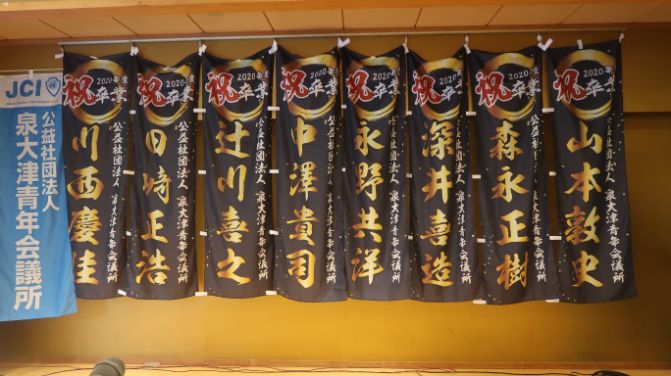 JCI
公益社団法人
泉大津青年会議所
祝
2020年度
卒業
公益社団法人 泉大津青年会議所
川西慶佳
祝
2020年度
卒業
公益社団法人 泉大津青年会議所
田崎正浩
祝
2020年度
卒業
公益社団法人 泉大津青年会議所
辻川喜之
祝
2020年度
卒業
公益社団法人 泉大津青年会議所
中澤貴司
祝
2020年度
卒業
公益社団法人 泉大津青年会議所
永野共洋
祝
2020年度
卒業
公益社団法人 泉大津青年会議所
深井喜造
祝
2020年度
卒業
公益社団法人 泉大津青年会議所
森永正樹
祝
2020年度
卒業
公益社団法人 泉大津青年会議所
山本敦史